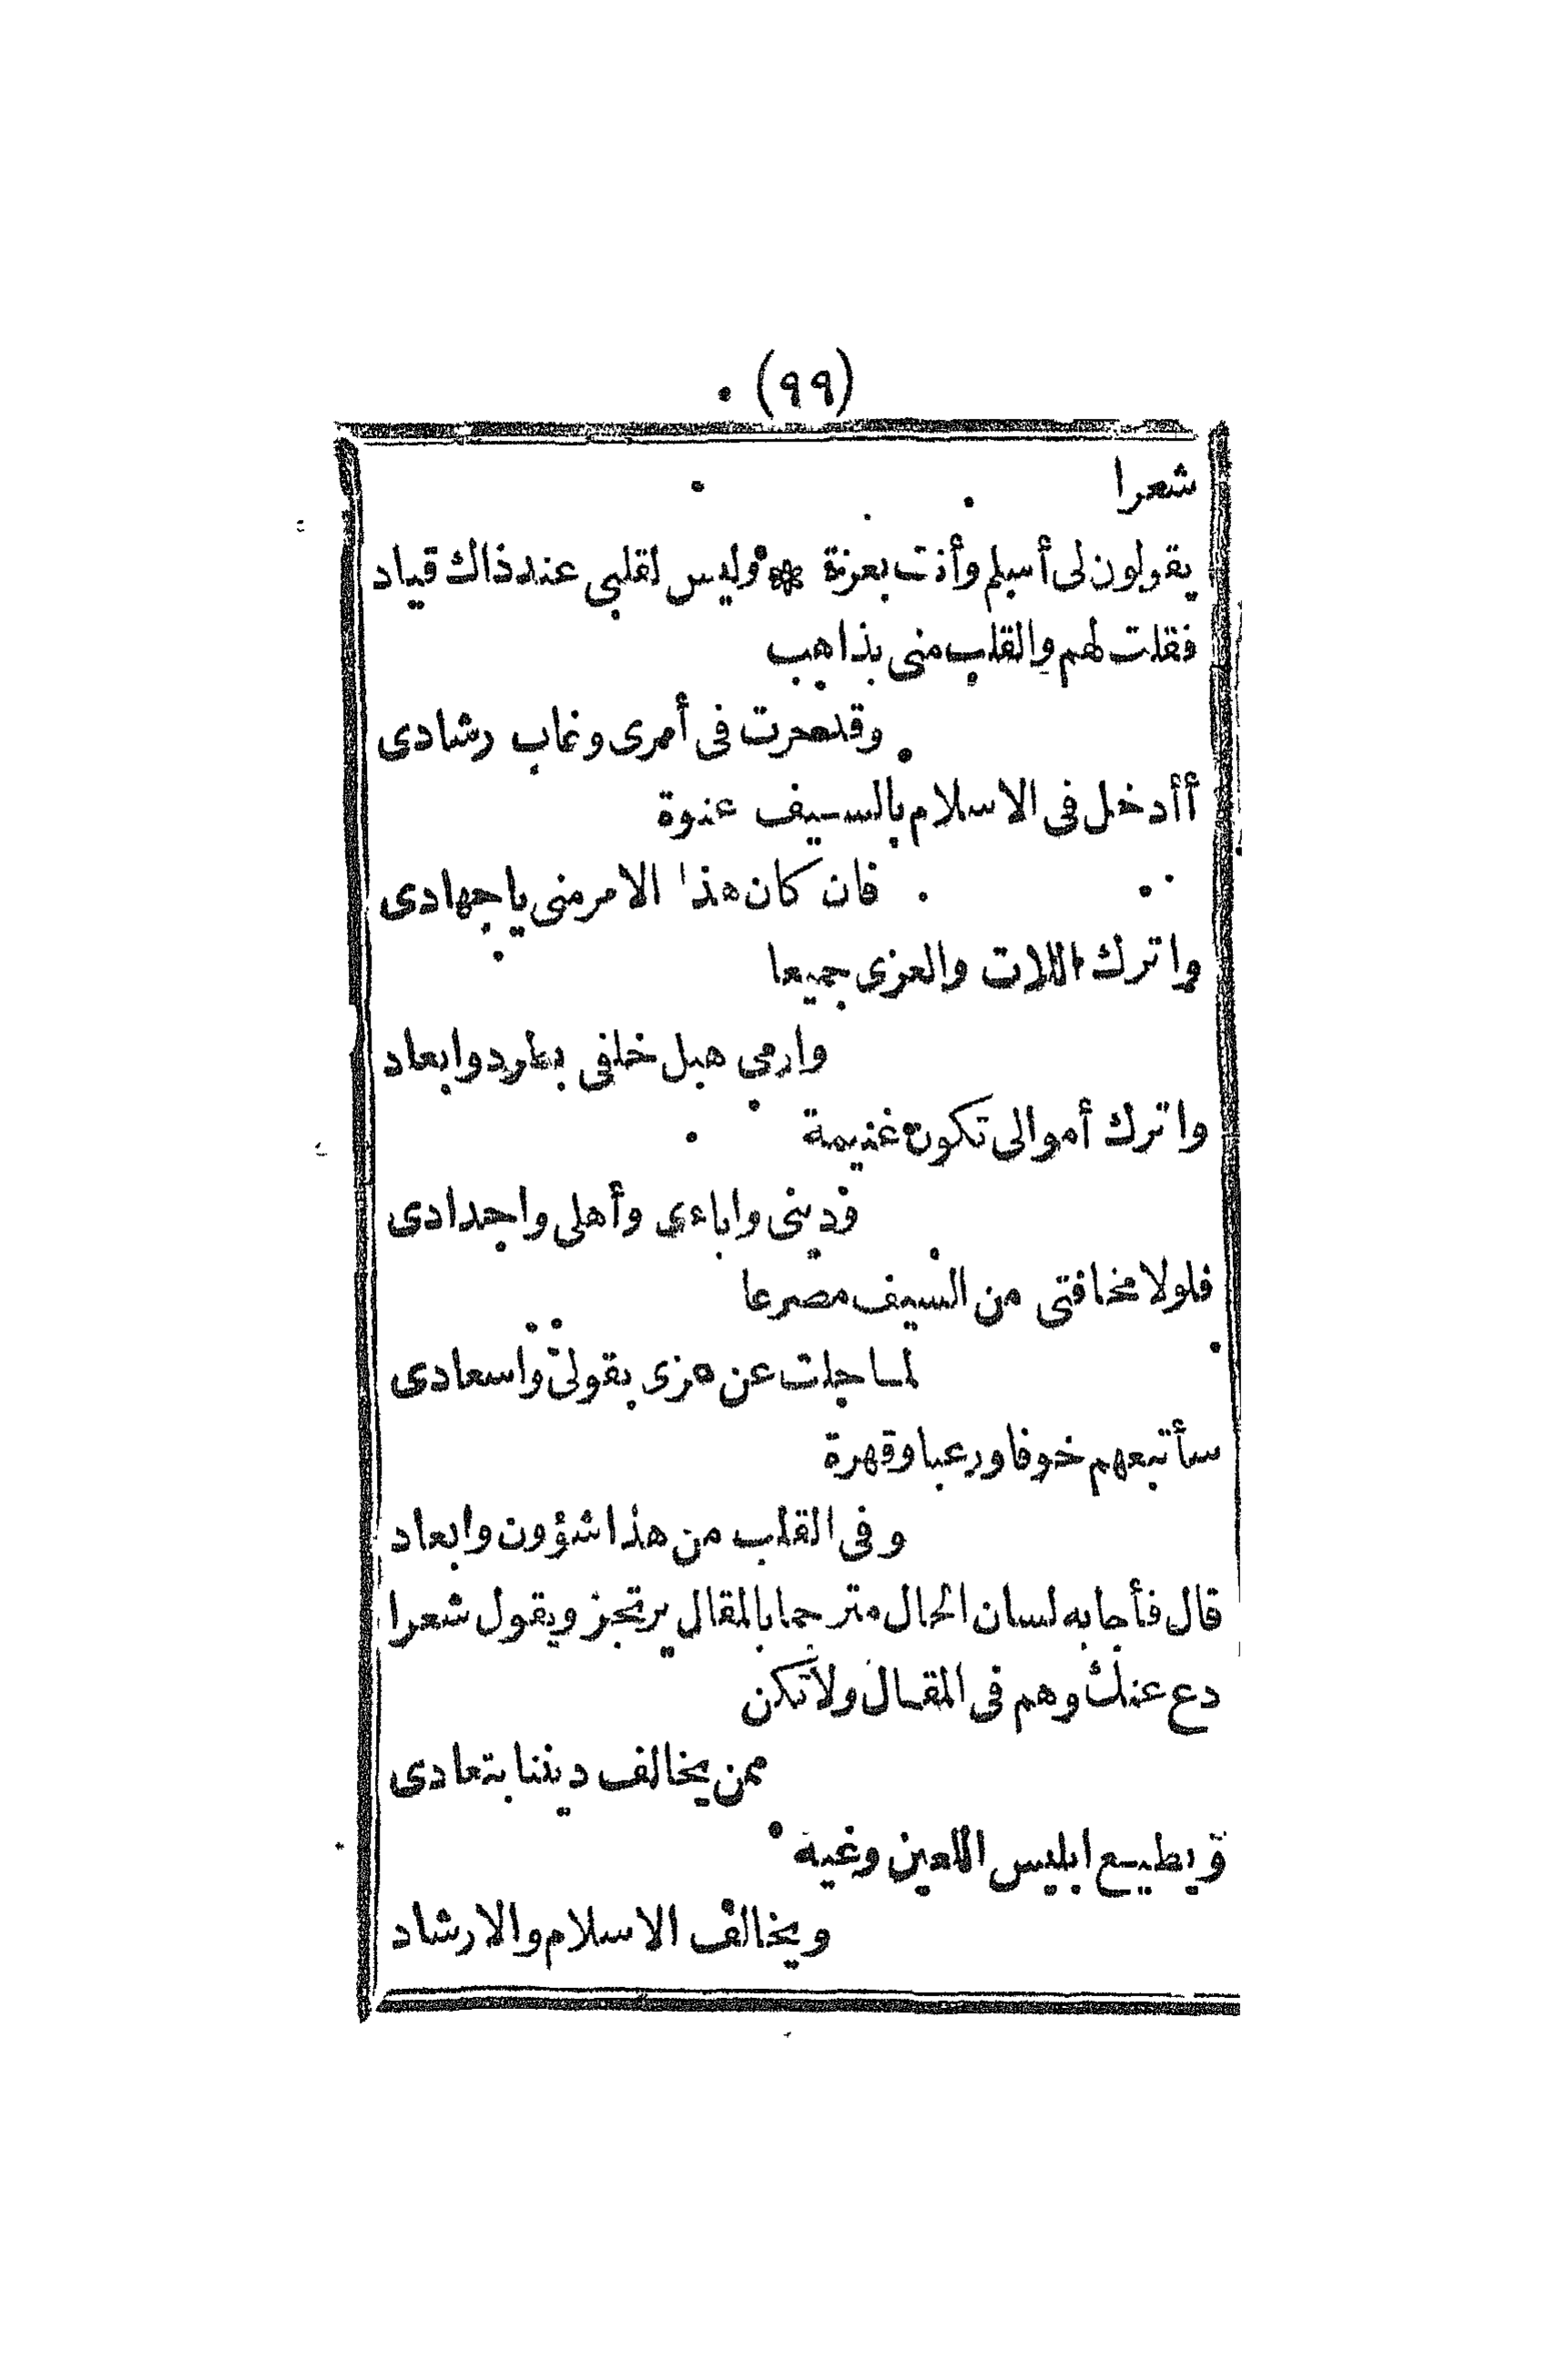 (٩٩)
شعرا
يقولون لى أسلم وأنت بعزة ❀ وليس لقلبى عند ذاك قياد
فقلت لهم والقلب منى بذاهب
وقد حرت فى أمرى وغاب رشادى
أأدخل فى الاسلام بالسيف عنوة
فان كان هذا الامر منى ياجهادى
واترك اللات والعزى جميعا
وارمى هبل خلفى بطرد وابعاد
واترك أموالى تكون غنيمة
فدينى واباءى وأهلى واجدادى
فلولا مخافتى من السيف مصرعا
لما حلت عن عزى بقولى واسعادى
سأتبعهم خوفا ورعبا وقهرة
وفى القلب من هذا شؤون وابعاد
قال فأجابه لسان الحال مترجما بالمقال يرتجز ويقول شعرا
دع عنك وهم فى المقال ولا تكن
ممن يخالف ديننا بتعادى
ويطيع ابليس اللعين وغيه
ويخالف الاسلام والارشاد